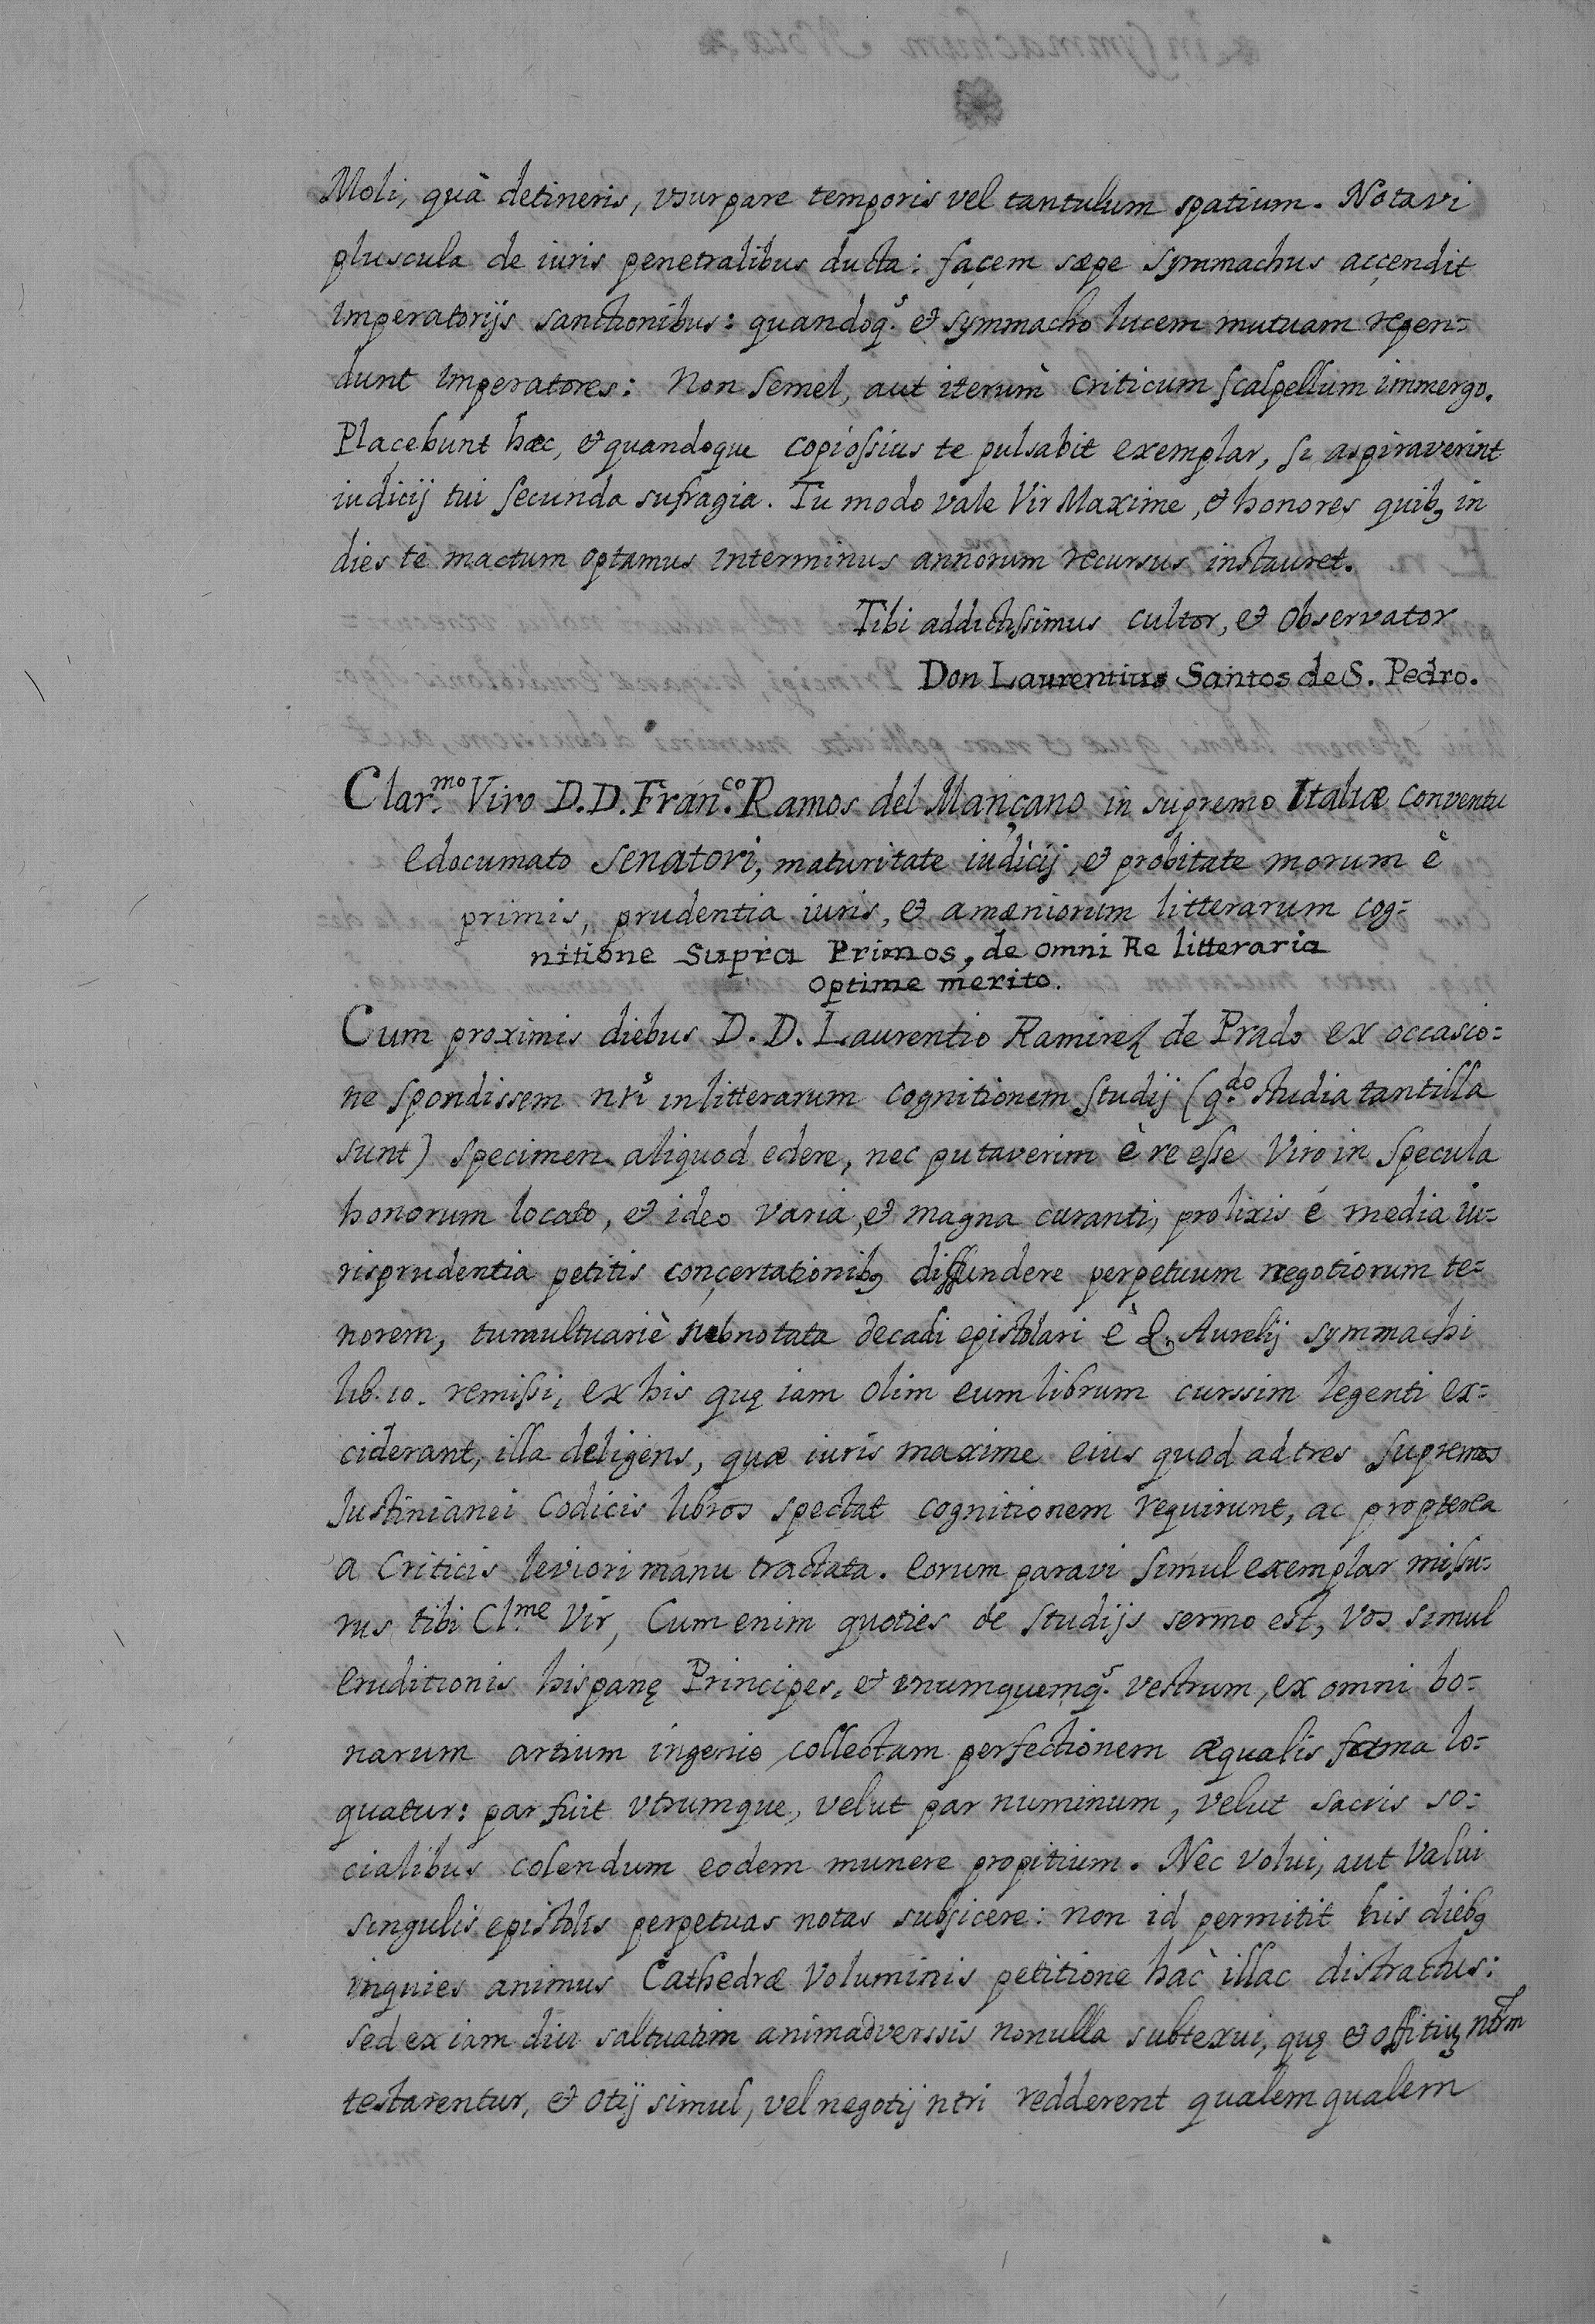 Moli, quâ detineris, vsurpare temporis vel tantulum spatium. Notavi
pluscula de iuris penetralibus ducta: façem sæpe Symmachus accendit
Imperatorijs sanctionibus: quandoq; & symmacho lucem mutuam repen=
dunt Imperatores: Non semel, aut iterum criticum scalpellum immergo.
Placebunt hæc, & quandoque copiossius te pulsabit exemplar, si aspiraverint
iudicij tui secunda sufragia. Tu modo vale Vir Maxime, & honores quib9 in
dies te mactum optamus interminus annorum recursus instauret.
Tibi addictissimus cultor, & observator
Don Laurentius Santos de S. Pedro.
Clar.mo Viro D. D. Fran.co Ramos del Mançano in supremo Italiæ conventu
edocumato Senatori, maturitate iudicij, & probitate morum è
primis, prudentia iuris, & amæniorum litterarum cog=
nitione Supra Primos, de omni Re litteraria
optime merito.
Cum proximis diebus D. D. Laurentio Ramirez de Prado ex occasio=
ne spondissem nri in litterarum cognitionem studij (q.do studia tantilla
sunt) specimen aliquod edere, nec putaverim è re esse Viro in specula
honorum locato, & ideo varia, & magna curanti, prolixis é media iu=
risprudentia petitis conçertationib9 diffundere perpetuum negotiorum te=
norem, tumultuariè subnotata decadi epistolari è Q. Aurelij symmachi
lib. 10. remissi, ex his quę iam olim eum librum curssim legenti ex=
ciderant, illa deligens, quæ iuris maxime eius quod ad tres supremos
Justinianei Codicis libros spectat cognitionem requirunt, ac propterea
a Criticis leviori manu tractata. eorum paravi simul exemplar missu=
rus tibi Cl.me Vir, Cum enim quoties de studijs sermo est, vos simul
eruditionis hispanę Principes, & vnumquemq; vestrum, ex omni bo=
narum artium ingenio collectam perfectionem æqualis fama lo=
quatur: par fuit vtrumque, velut par numinum, velut sacris so=
cialibus colendum eodem munere propitium. Nec volui, aut valui
singulis epistolis perpetuas notas subjicere: non id permitit his dieb9
inquies animus Cathedræ Voluminis petitione hàc illac distractus:
sed ex iam diu saltuatim animadverssis nonulla subtexui, quę & offitiu3 ntrm
testarentur, & otij simul, vel negotij ntri redderent qualem qualem